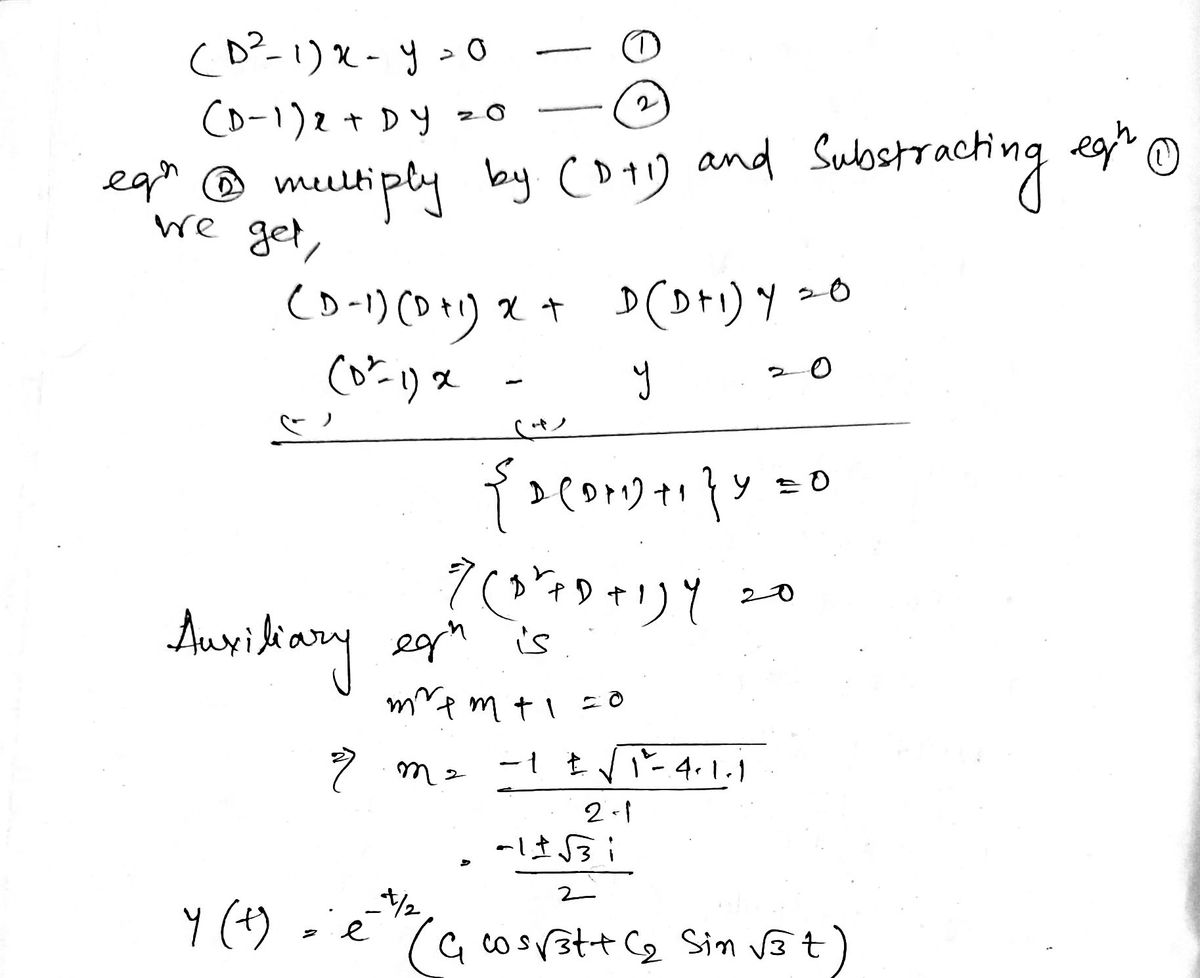 (D²-1)x - y = 0 — ①
(D-1)x + Dy = 0 — ②
eqⁿ ② multiply by (D+1) and Substracting eqⁿ ①
we get,
(D-1)(D+1) x + D(D+1) y = 0
(D²-1) x - y = 0
(-) (+)
{D(D+1)+1} y = 0
⇒ (D²+D+1) y = 0
Auxiliary eqⁿ is
m²+m+1 = 0
⇒ m = (-1 ± √(1²-4.1.1))/(2.1)
= (-1 ± √3 i)/2
y(t) = e^(-t/2) (C₁ cos√3t + C₂ Sin √3 t)